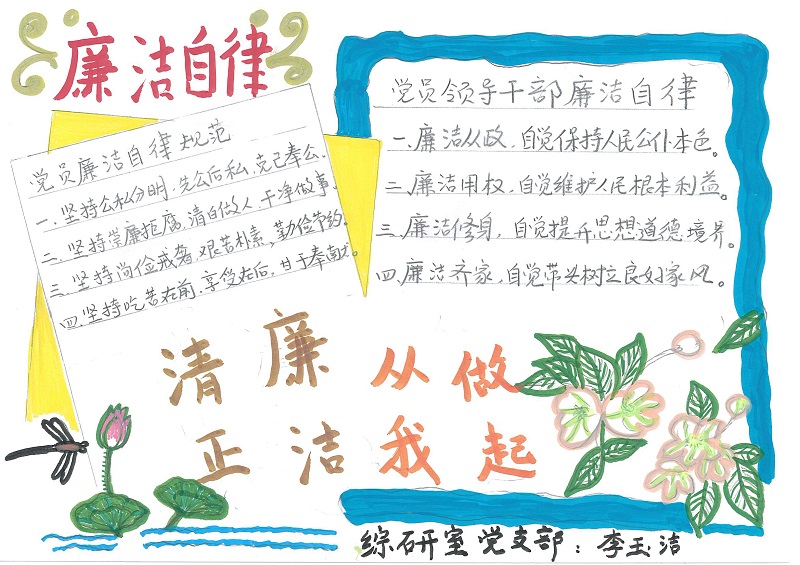 廉洁自律
党员廉洁自律规范
一.坚持公私分明,先公后私,克己奉公.
二.坚持崇廉拒腐,清白做人 干净做事.
三.坚持尚俭戒奢,艰苦朴素,勤俭节约.
四.坚持吃苦在前.享受在后,甘于奉献.
党员领导干部廉洁自律
一.廉洁从政,自觉保持人民公仆本色。
二.廉洁用权,自觉维护人民根本利益。
三.廉洁修身,自觉提升思想道德境界。
四.廉洁齐家,自觉带头树立良好家风。
清廉
正洁
从做
我起
综研室党支部:李玉洁